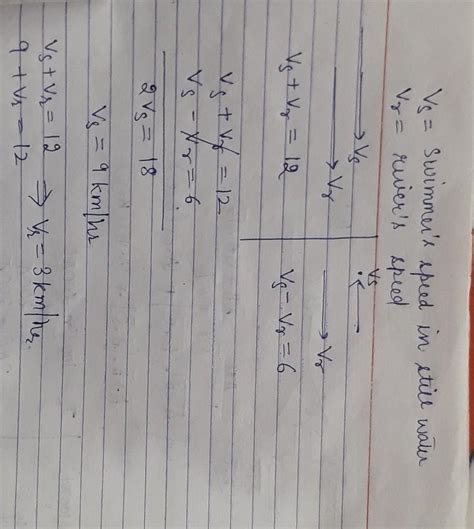 Vs = Swimmer's speed in still water
Vr = river's speed
Vs
Vr
Vs + Vr = 12
Vs
Vr
Vs - Vr = 6
Vs + Vr = 12
Vs - Vr = 6
2Vs = 18
Vs = 9 km/hr
Vs + Vr = 12 ⇒ Vr = 3 km/hr.
9 + Vr = 12